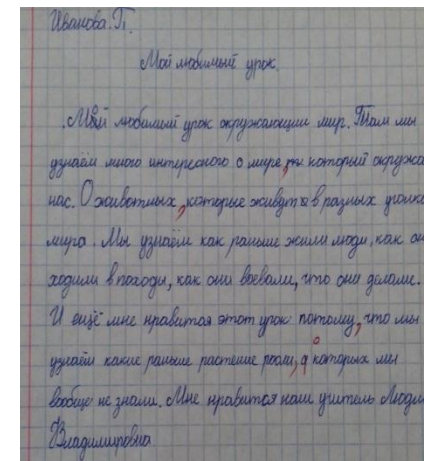 Иванова. П.
Мой любимый урок.
Мой любимый урок окружающии мир. Там мы
узнаём много интересного о мире, который окружа
нас. О животных, которые живут в разных уголка
мира. Мы узнаём как раньше жили люди, как он
ходили в походы, как они воевали, что они делали.
И ещё мне нравится этот урок потому, что мы
узнаём какие раньше растение росли, о которых мы
вообще не знали. Мне нравится наш учитель Людм
Владимировна